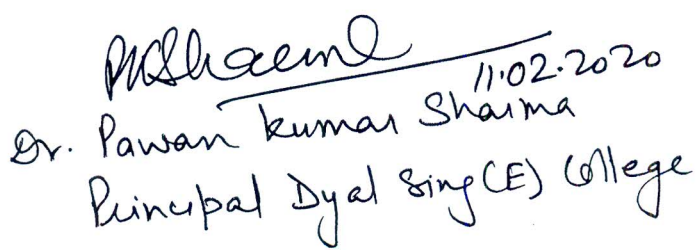 PKSharma
11.02.2020
Dr. Pawan Kumar Sharma
Principal Dyal Sing (E) College